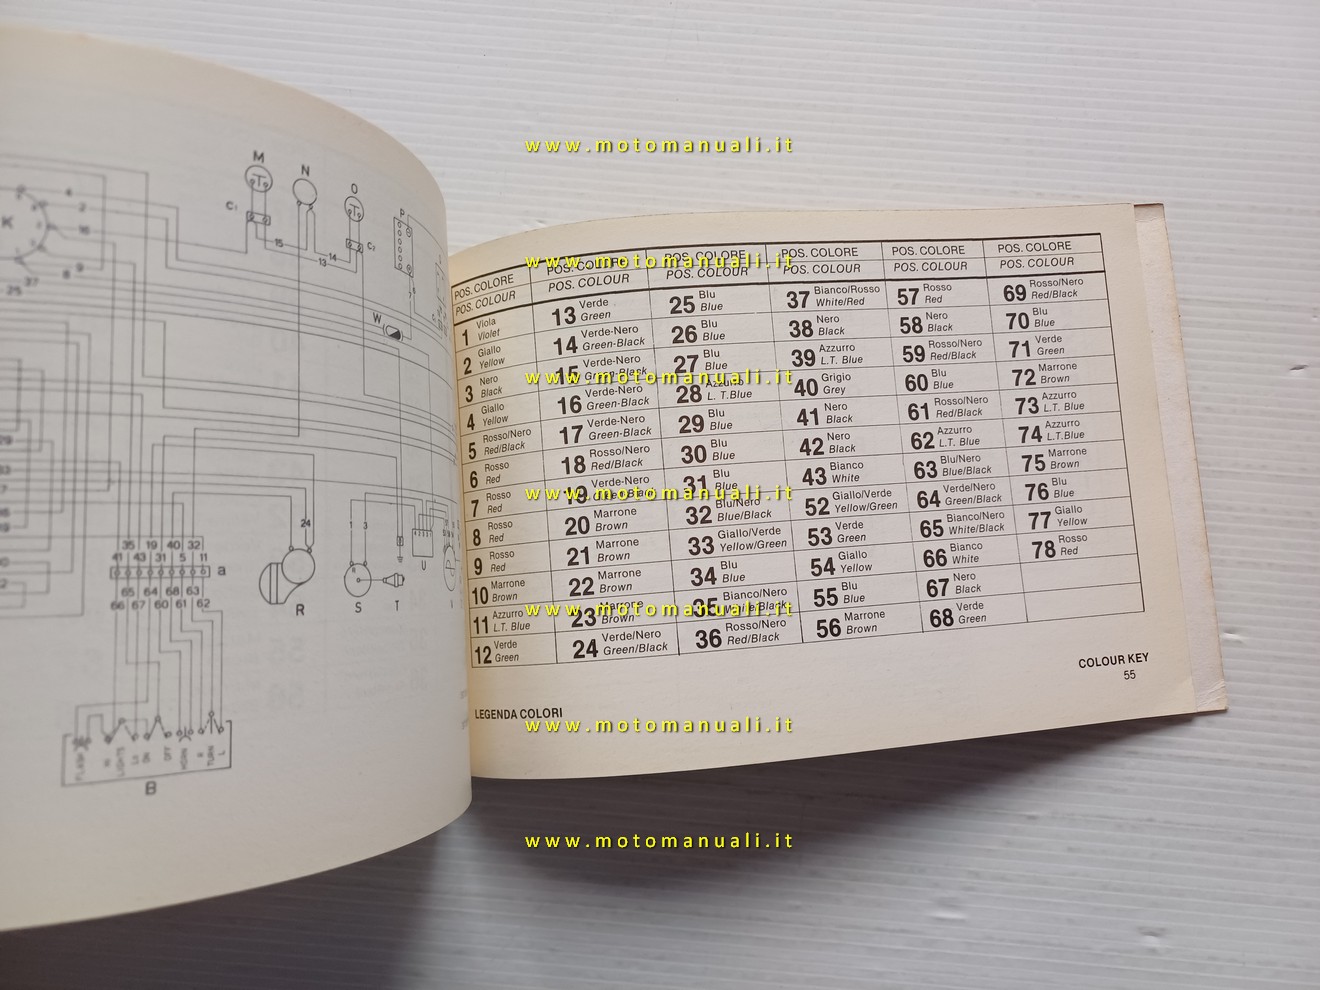 www.motomanuali.it
M
N
O
P
K
4
2
16
C1
C2
15
14
13
9
8
37
25
W
29
33
24
1
3
U
R
S
T
35 19 40 32
41 43 31 5 11
a
65 64 68 63
66 67 60 61 62
FLASH
HI
LIGHTS
LO
ON
OFF
HORN
R
TURN
L
B
POS. COLORE
POS. COLOUR
1 Viola
Violet
2 Giallo
Yellow
3 Nero
Black
4 Giallo
Yellow
5 Rosso/Nero
Red/Black
6 Rosso
Red
7 Rosso
Red
8 Rosso
Red
9 Rosso
Red
10 Marrone
Brown
11 Azzurro
L.T. Blue
12 Verde
Green
POS. COLORE
POS. COLOUR
13 Verde
Green
14 Verde-Nero
Green-Black
15 Verde-Nero
Green-Black
16 Verde-Nero
Green-Black
17 Verde-Nero
Green-Black
18 Rosso/Nero
Red/Black
19 Verde-Nero
Green/Black
20 Marrone
Brown
21 Marrone
Brown
22 Marrone
Brown
23 Marrone
Brown
24 Verde/Nero
Green/Black
POS. COLORE
POS. COLOUR
25 Blu
Blue
26 Blu
Blue
27 Blu
Blue
28 Azzurro
L. T. Blue
29 Blu
Blue
30 Blu
Blue
31 Blu
Blue
32 Blu/Nero
Blue/Black
33 Giallo/Verde
Yellow/Green
34 Blu
Blue
35 Bianco/Nero
White/Black
36 Rosso/Nero
Red/Black
POS. COLORE
POS. COLOUR
37 Bianco/Rosso
White/Red
38 Nero
Black
39 Azzurro
L.T. Blue
40 Grigio
Grey
41 Nero
Black
42 Nero
Black
43 Bianco
White
52 Giallo/Verde
Yellow/Green
53 Verde
Green
54 Giallo
Yellow
55 Blu
Blue
56 Marrone
Brown
POS. COLORE
POS. COLOUR
57 Rosso
Red
58 Nero
Black
59 Rosso/Nero
Red/Black
60 Blu
Blue
61 Rosso/Nero
Red/Black
62 Azzurro
L.T. Blue
63 Blu/Nero
Blue/Black
64 Verde/Nero
Green/Black
65 Bianco/Nero
White/Black
66 Bianco
White
67 Nero
Black
68 Verde
Green
POS. COLORE
POS. COLOUR
69 Rosso/Nero
Red/Black
70 Blu
Blue
71 Verde
Green
72 Marrone
Brown
73 Azzurro
L.T. Blue
74 Azzurro
L.T.Blue
75 Marrone
Brown
76 Blu
Blue
77 Giallo
Yellow
78 Rosso
Red
LEGENDA COLORI
COLOUR KEY
55
www.motomanuali.it
www.motomanuali.it
www.motomanuali.it
www.motomanuali.it
www.motomanuali.it
www.motomanuali.it